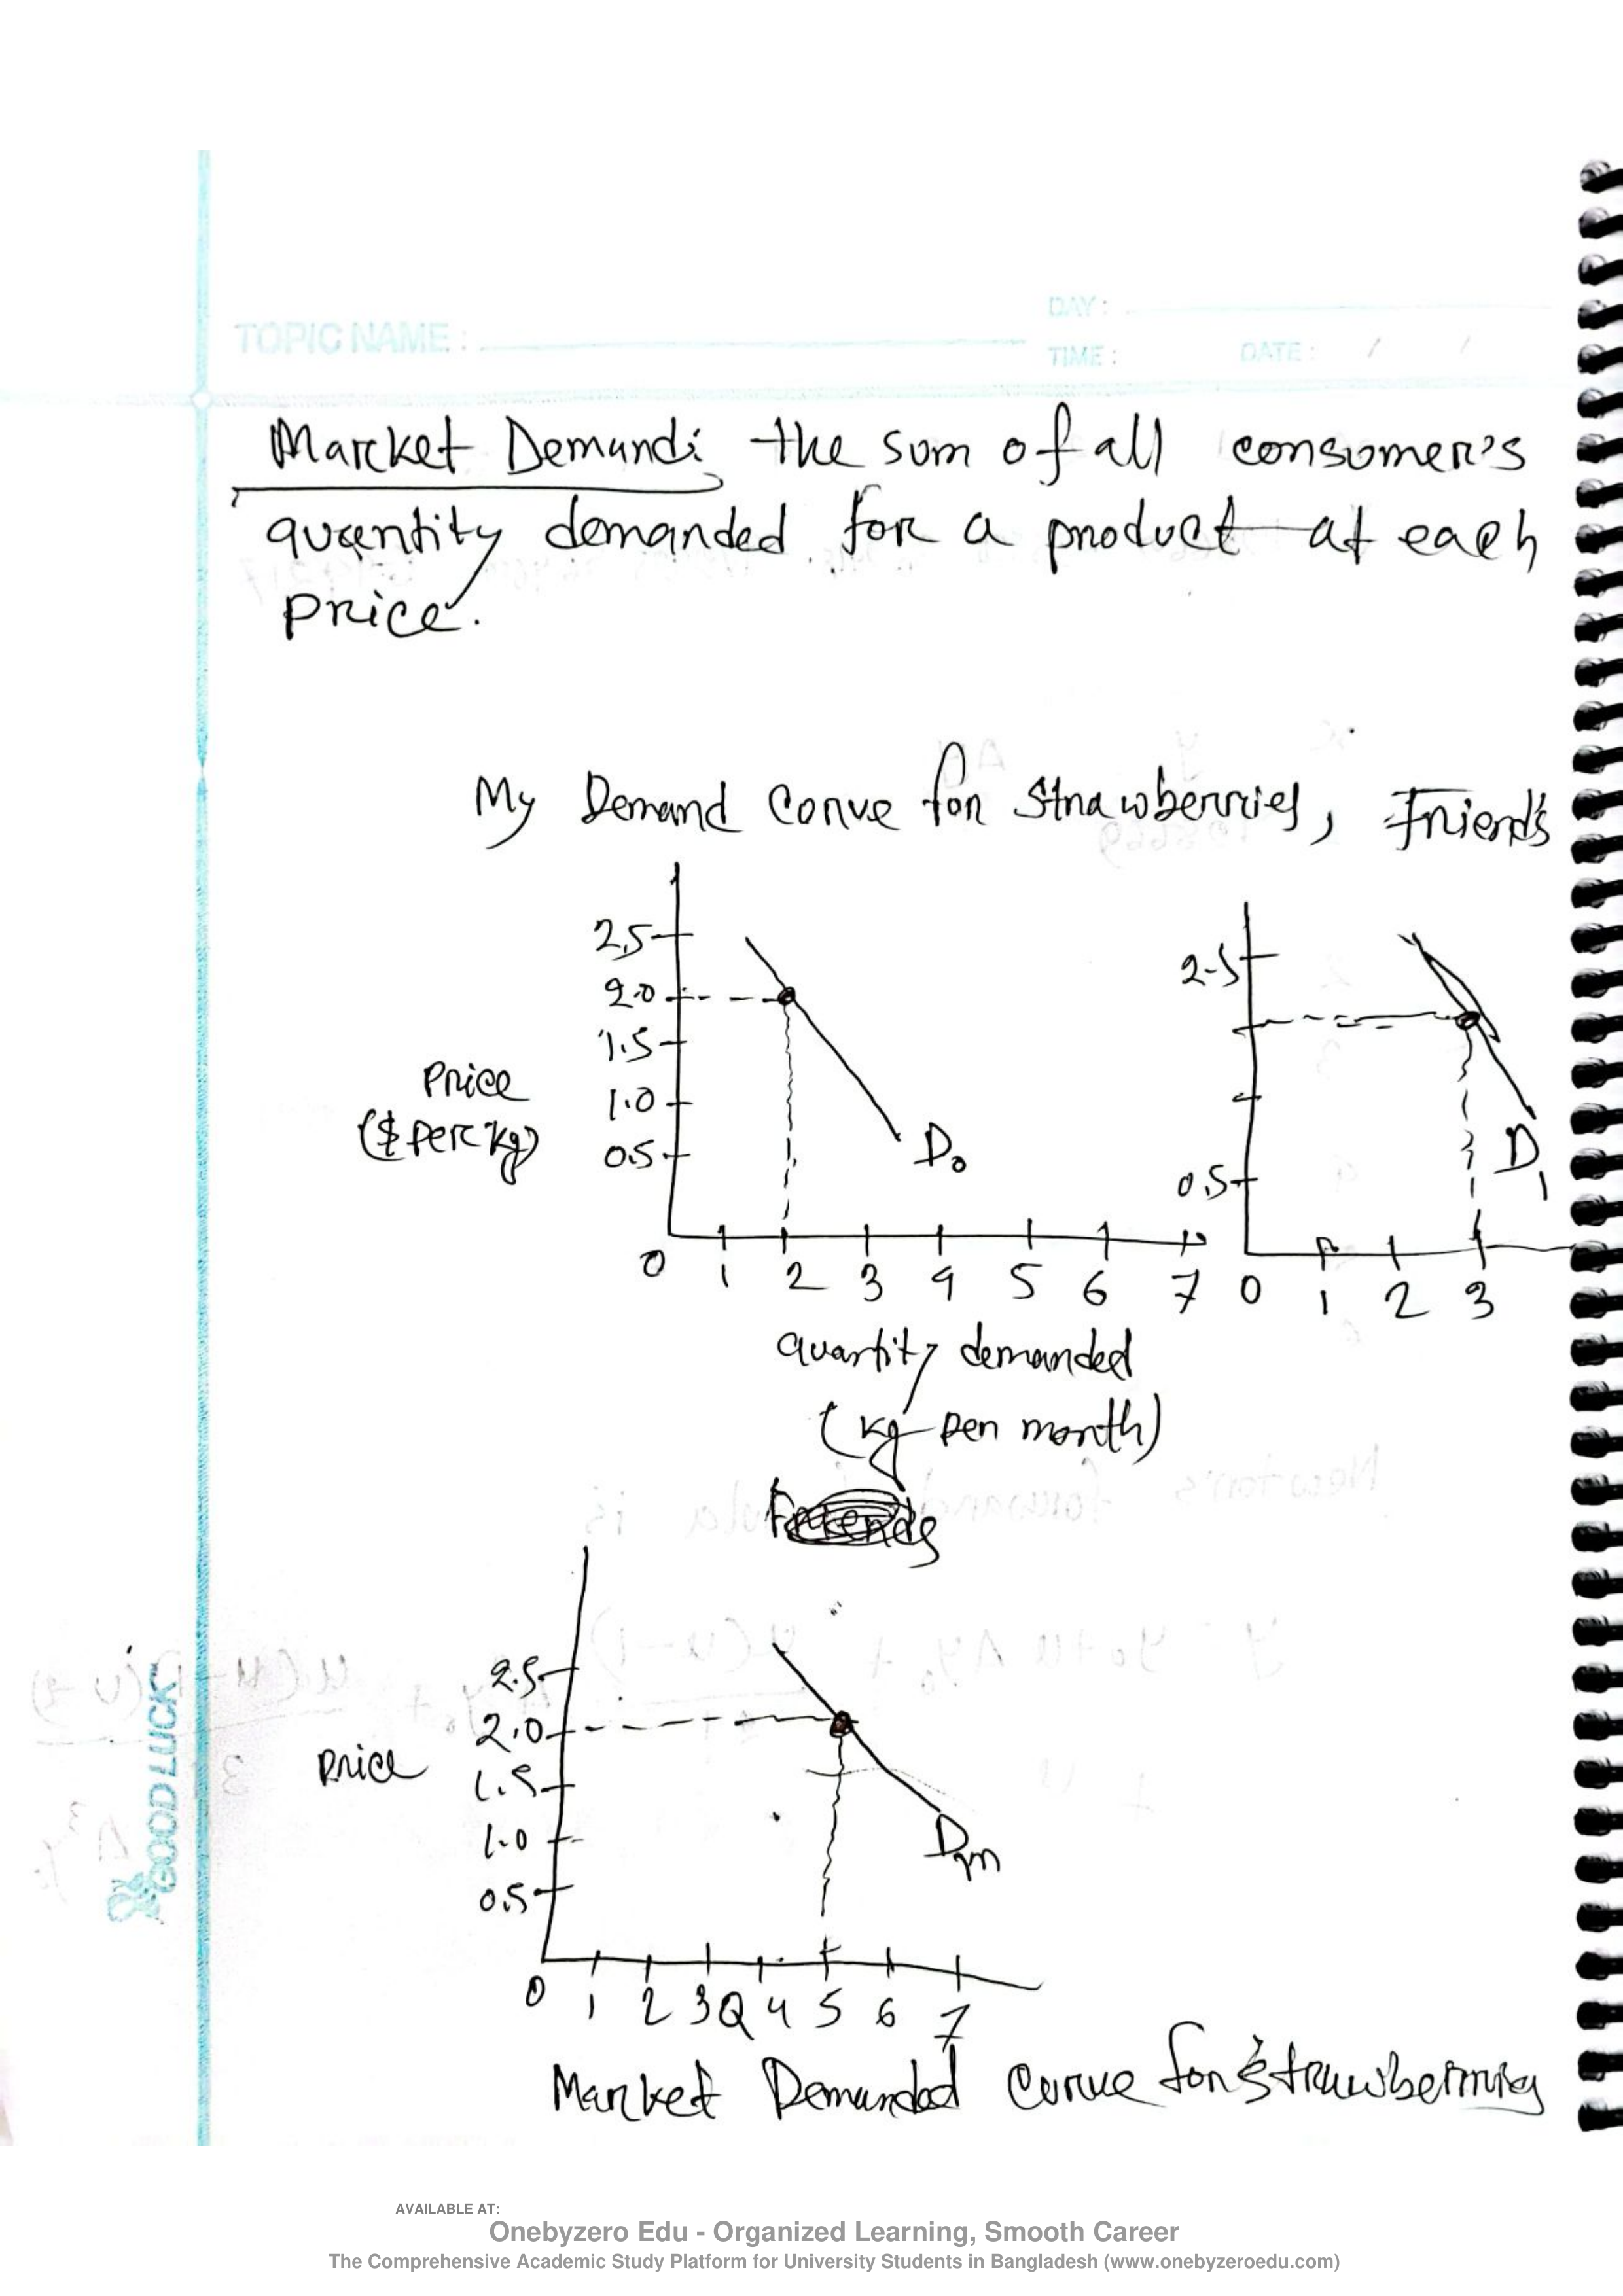 DAY :
TOPIC NAME :
TIME : DATE : / /
Market Demand: the sum of all consumer's
quantity demanded for a product at each
price.
My Demand Curve for Strawberries, Friend's
2.5
2.0
1.5
Price
1.0
($ per kg)
0.5
D₀
0 1 2 3 4 5 6 7
2.5
0.5
D₁
0 1 2 3
quantity demanded
(kg per month)
2.5
2.0
Price
1.5
1.0
0.5
Dm
0 1 2 3 Q 4 5 6 7
Market Demanded Curve for Strawberries
GOOD LUCK
AVAILABLE AT:
Onebyzero Edu - Organized Learning, Smooth Career
The Comprehensive Academic Study Platform for University Students in Bangladesh (www.onebyzeroedu.com)